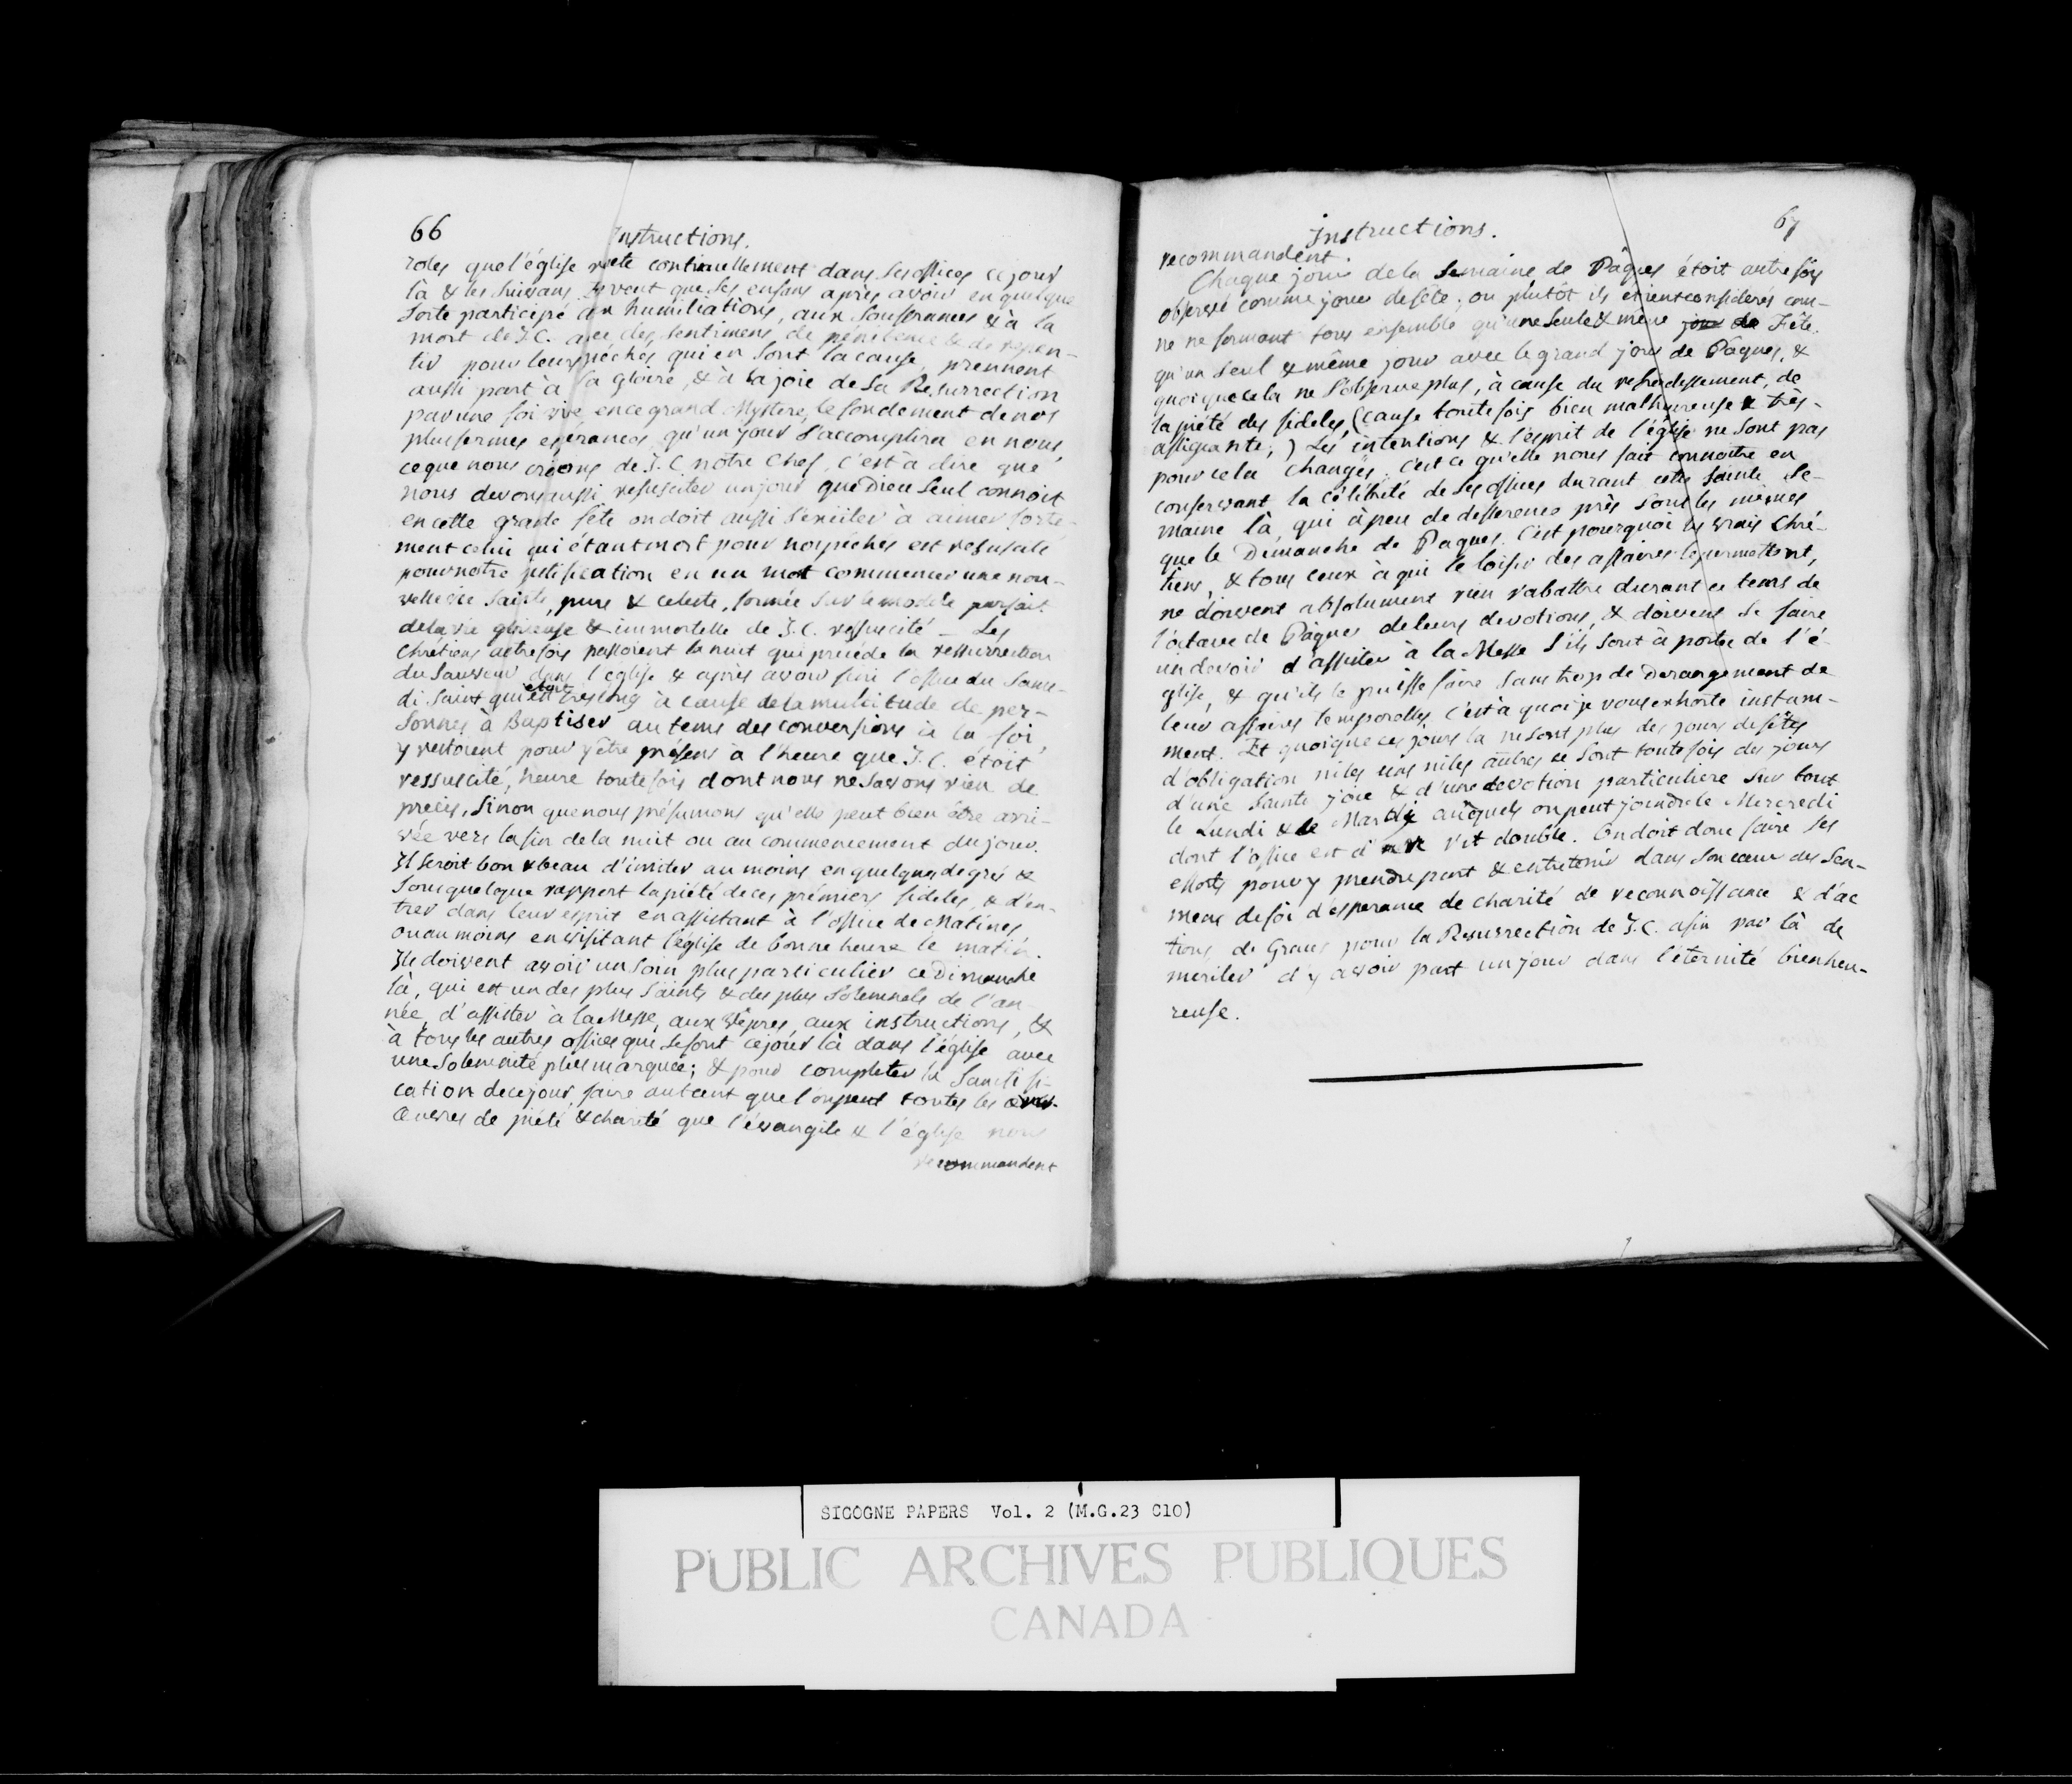 66
Instructions.
roles que l'église repete continuellement dans ses offices ce jour
là & les suivans, & veut que ses enfans après avoir en quelque
sorte participé aux humiliations, aux souffrances & à la
mort de J.C. avec des sentimens de pénitence & de repen-
tir pour leurs péchés qui en sont la cause, prennent
aussi part à sa gloire, & à la joie de sa Resurrection
par une foi vive en ce grand Mystere, le fondement de nos
plus fermes espérances, qu'un jour s'accomplira en nous,
ce que nous croions de J.C. notre Chef, c'est à dire que
nous devons aussi ressusciter un jour que Dieu seul connoit
en cette grande fête on doit aussi s'exciter à aimer forte-
ment celui qui étant mort pour nos péchés est ressuscité
pour notre justification en un mot commencer une nou-
velle vie sainte, pure & celeste, formée sur le modéle parfait
de la vie glorieuse & immortelle de J.C. ressuscité – Les
Chrétiens autrefois passoient la nuit qui précéde la ressurrection
du Sauveur dans l'église & après avoir fini l'office du Same-
di Saint qui étoit très long à cause de la multitude de per-
sonnes à Baptiser au tems des conversions à la foi,
y restoient pour y être présens à l'heure que J.C. étoit
ressuscité, heure toutefois dont nous ne savons rien de
précis, sinon que nous présumons qu'elle peut bien être arri-
vée vers la fin de la nuit ou au commencement du jour.
Il seroit bon & beau d'imiter au moins en quelques degrés &
sous quelque rapport la piété de ces prémiers fideles, & d'en-
trer dans leur esprit en assistant à l'office de Matines
ou au moins en visitant l'église de bonne heure le matin.
Ils doivent avoir un soin plus particulier ce Dimanche
là, qui est un des plus saints & des plus solemnels de l'an-
née, d'assister à la Messe, aux Vêpres, aux instructions, &
à tous les autres offices qui se font ce jour là dans l'église avec
une solemnité plus marquée; & pour completer la sanctifi-
cation de ce jour, faire autant que l'on peut toutes les
œuvres de piété & charité que l'évangile & l'église nous
recommandent
Instructions.
67
recommandent.
Chaque jour de la semaine de Pâques étoit autrefois
observé comme jour de fête; ou plutôt ils étoient considerés com-
me ne formant tous ensemble qu'une seule & même jour de Fête.
qu'un seul & même jour avec le grand jour de Pâques, &
quoique cela ne s'observe plus, à cause du refroidissement, de
la piété des fideles, (cause toutefois bien malheureuse & très-
affligeante;) Les intentions & l'esprit de l'église ne sont pas
pour cela changés. C'est ce qu'elle nous fait connoitre en
conservant la célébrité de ses offices durant cette sainte se-
maine là, qui à peu de difference près sont les mêmes
que le Dimanche de Paques. C'est pourquoi les vrais Chré-
tiens, & tous ceux à qui le loisir des affaires le permettent,
ne doivent absolument rien rabattre durant ce tems de
l'octave de Pâques de leurs devotions, & doivent se faire
un devoir d'assister à la Messe s'ils sont à portée de l'é-
glise, & qu'ils le puisse faire sans trop de Derangement de
leur affaires temporelles. C'est à quoi je vous exhorte instam-
ment. Et quoique ces jours la ne sont plus des jours de fêtes
d'obligation ni les uns ni les autres ce sont toutefois des jours
d'une sainte joie & d'une devotion particuliere sur tout
le Lundi & le Mardi auquels on peut joindre le Mercredi
dont l'office est d'un rit double. On doit donc faire ses
efforts pour y prendre part & entretenir dans son cœur des sen-
mens de foi d'esperance de charité de reconnoissance & d'ac
tions de Graces pour la Resurrection de J.C. afin par là de
meriter d'y avoir part un jour dans l'éternité bienheu-
reuse.
SIGOGNE PAPERS Vol. 2 (M.G.23 C10)
PUBLIC ARCHIVES PUBLIQUES
CANADA